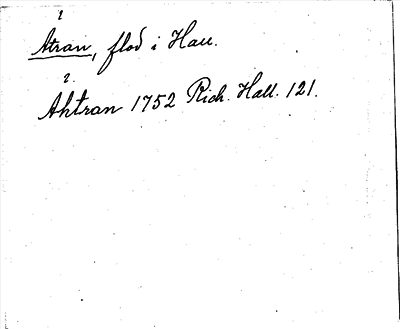 2
Atran, flod i Hall.
2.
Ahtran 1752 Rich. Hall. 121.